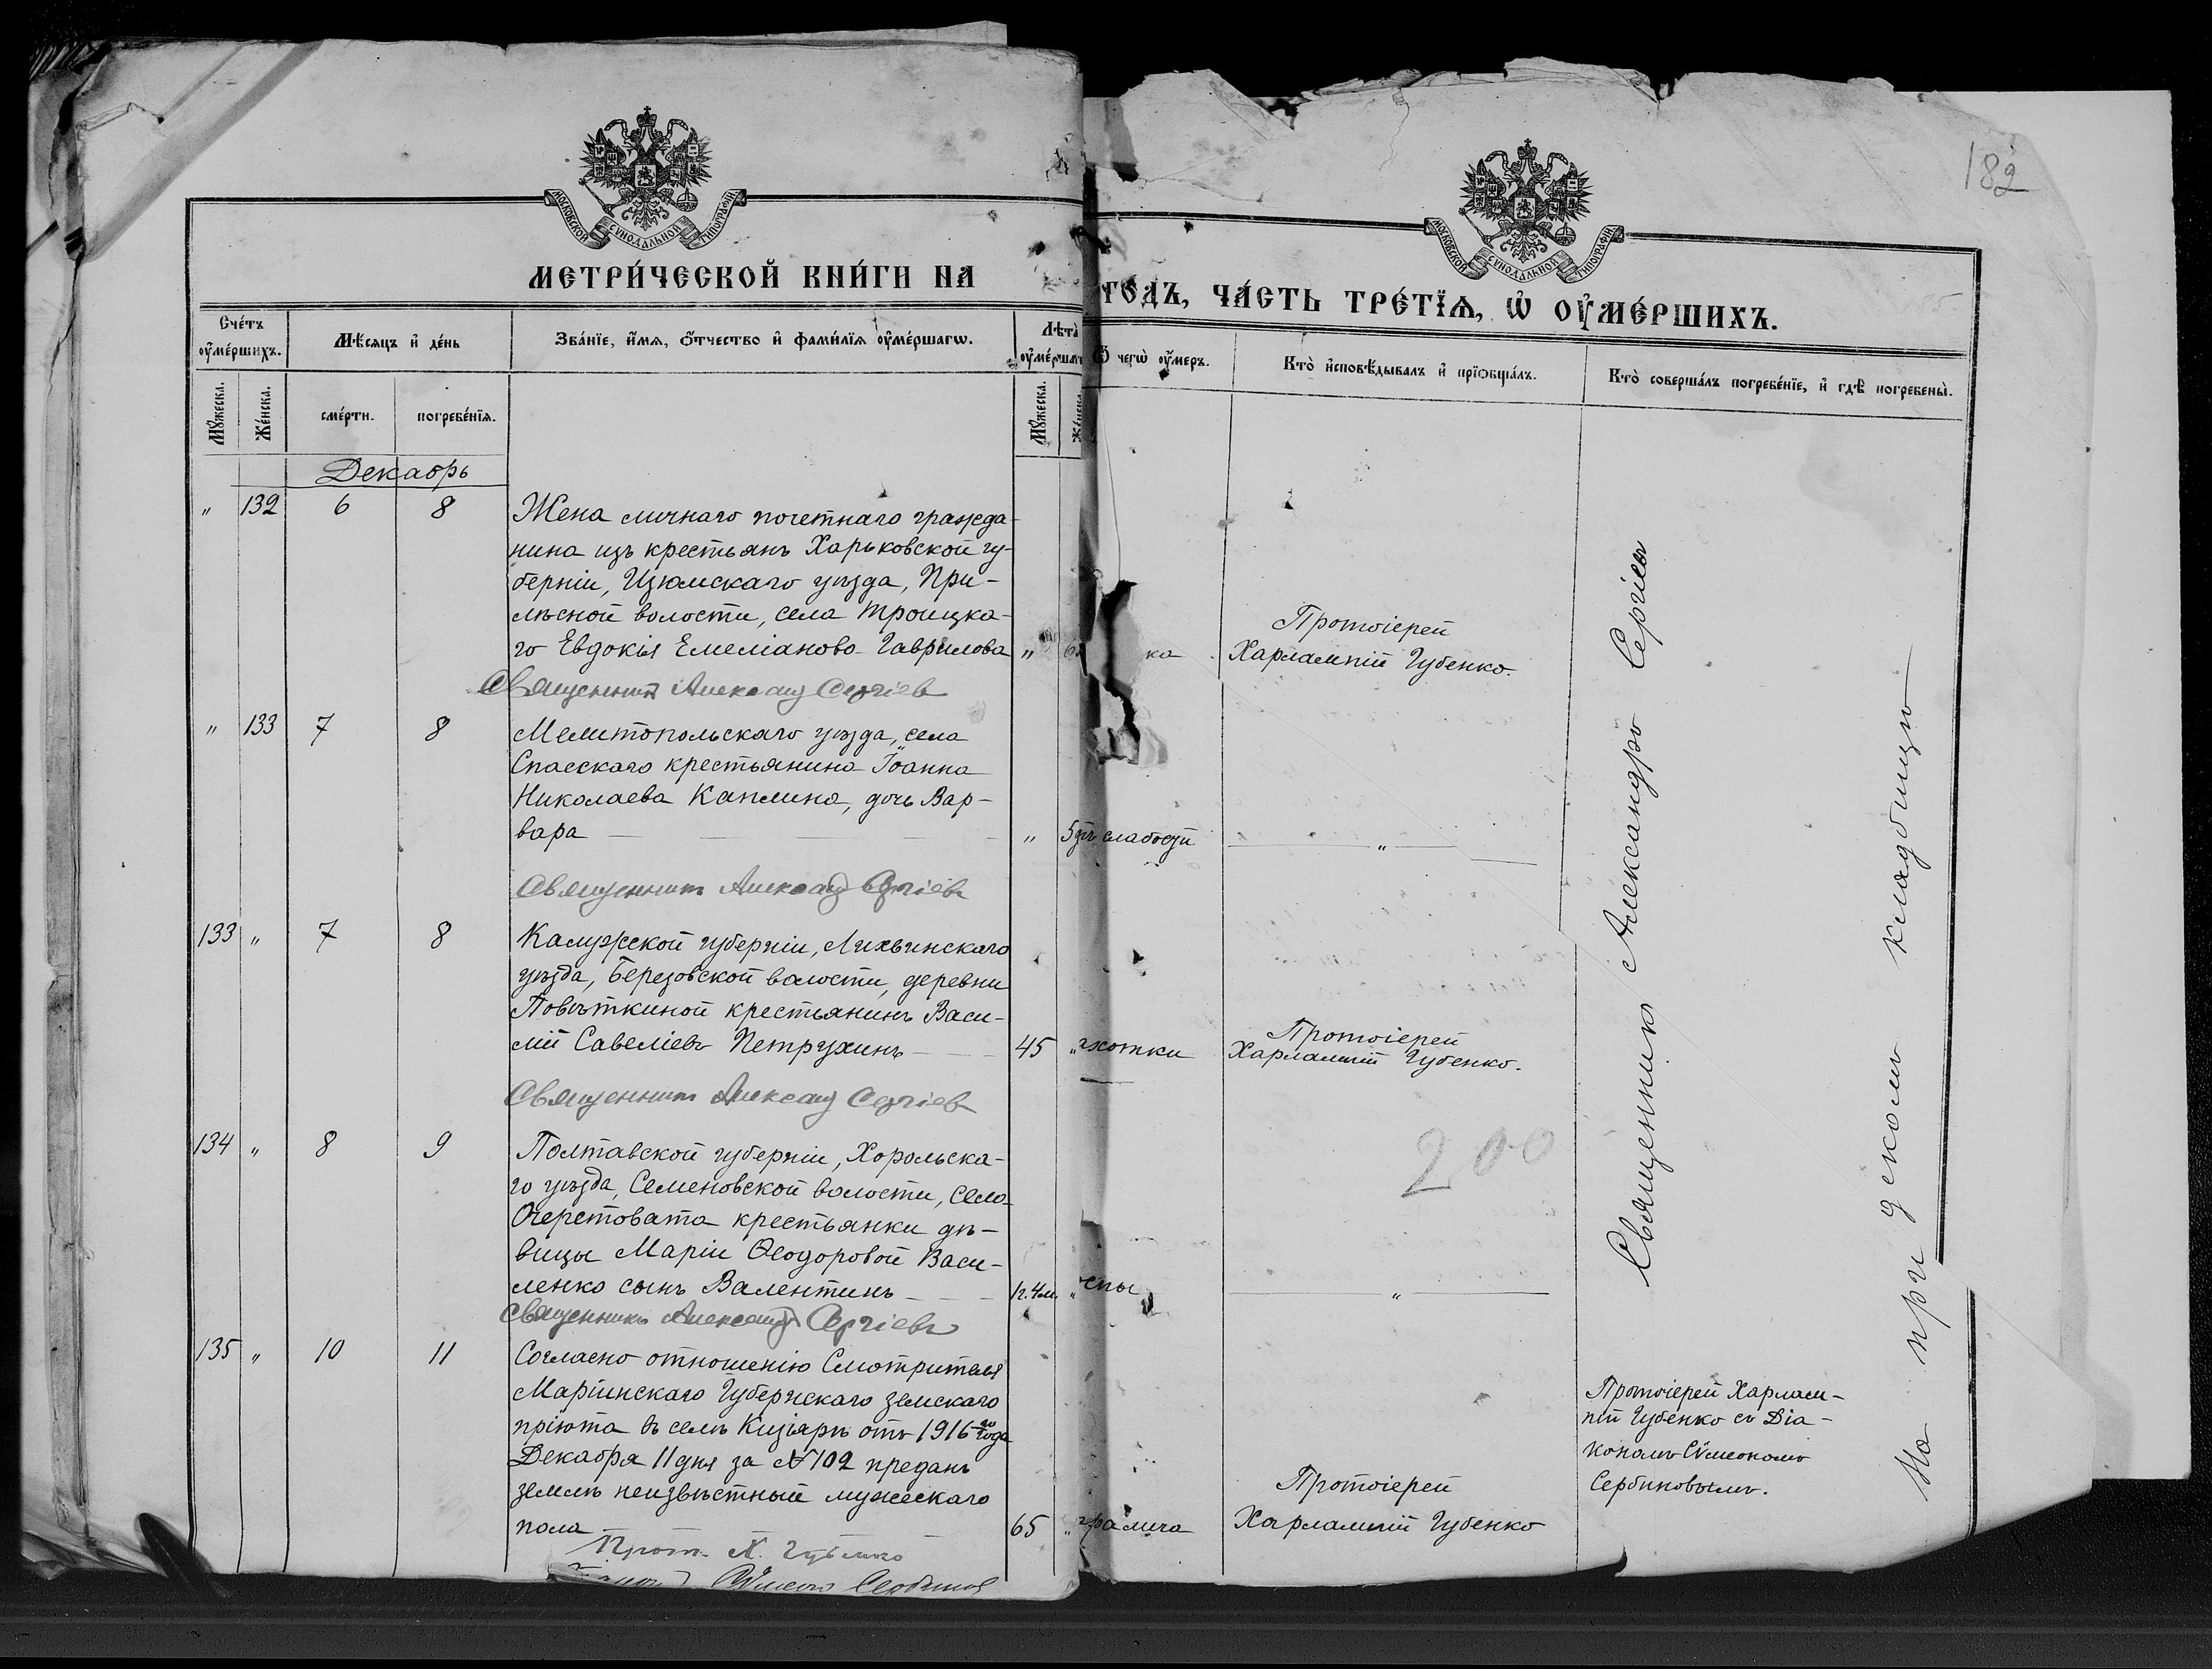 182
МОСКОВСКОЙ СУНОДАЛЬНОЙ ТИПОГРАФІИ
МОСКОВСКОЙ СУНОДАЛЬНОЙ ТИПОГРАФІИ
МЕТРИ́ЧЕСКОЙ КНИ́ГИ НА
ГО́ДЪ, ЧА́СТЬ ТРЕ́ТЇѦ, Ѡ҆ ОУ҆МЕ́РШИХЪ.
Сче́тъ оу҆ме́ршихъ.
Мѣ́сяцъ и҆ де́нь
Зва́нїе, и҆́мѧ, ѻ҆́тчество и҆ фами́лїѧ оу҆ме́ршагѡ.
Лѣта̀
Ѿ чегѡ̀ оу҆́меръ.
Кто̀ и҆сповѣ́дывалъ и҆ прїѻбща́лъ.
Кто̀ соверша́лъ погребе́нїе, и҆ гдѣ̀ погребены̀.
Мꙋ́жеска.
Же́нска.
сме́рти.
погребе́нїѧ.
Мꙋ́жеска.
Декабрь
" 132 6 8
Жена личнаго почетнаго гражда-
нина изъ крестьянъ Харьковской гу-
берніи, Изюмскаго уѣзда, При-
лѣсной волости, села Троицка-
го Евдокія Емеліанова Гаврилова "
ка
Протоіерей
Харлампій Губенко.
Священникъ Александ Сергіевъ
" 133 7 8
Мелитопольскаго уѣзда, села
Спасскаго крестьянина Іоанна
Николаева Каплина, дочь Вар-
вара "
слабости
"
Священникъ Александ Сергіевъ
133 " 7 8
Калужской губерніи, Лихвинскаго
уѣзда, Березовской волости, деревни
Повѣткиной крестьянинъ Васи-
лій Савеліевъ Петрухинъ 45 "
чахотки
Протоіерей
Харлампій Губенко.
Священникъ Александ Сергіевъ
200
134 " 8 9
Полтавской губерніи, Хорольска-
го уѣзда, Семеновской волости, села
Очеретовата крестьянки дѣ-
вицы Маріи Ѳеодоровой Васи-
ленко сынъ Валентинъ 1г.4м. "
оспы
"
Священникъ Александ Сергіевъ
135 " 10 11
Согласно отношенію Смотрителя
Маріинскаго Губернскаго земскаго
пріюта въ селѣ Кизіярѣ отъ 1916 го года
Декабря 11 дня за № 102 преданъ
землѣ неизвѣстный мужескаго
пола 65 "
Протоіерей
Харлампій Губенко
Протоіерей Харлам-
пій Губенко съ Діа-
кономъ Сѵмеономъ
Сербиновымъ.
Прот. Х. Губенко
Сѵмеонъ Сербиновъ
Священникъ Александръ Сергіевъ
На при кладбищѣ